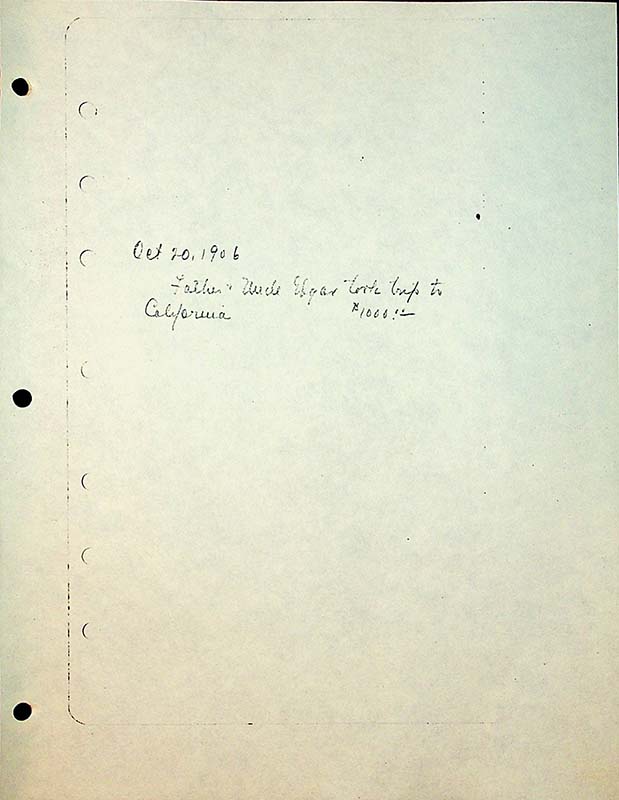 Oct 20, 1906
Father & Uncle Edgar took trip to
California $1000.00